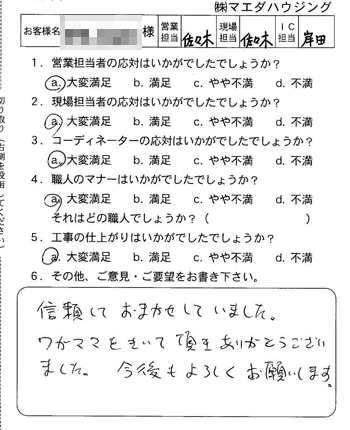 ㈱マエダハウジング
お客様名 様 営業担当 佐々木 現場担当 佐々木 IC担当 岸田
1．営業担当者の応対はいかがでしたでしょうか？
a. 大変満足 b. 満足 c. やや不満 d. 不満
2．現場担当者の応対はいかがでしたでしょうか？
a. 大変満足 b. 満足 c. やや不満 d. 不満
3．コーディネーターの応対はいかがでしたでしょうか？
a. 大変満足 b. 満足 c. やや不満 d. 不満
4．職人のマナーはいかがでしたでしょうか？
a. 大変満足 b. 満足 c. やや不満 d. 不満
それはどの職人でしょうか？（ ）
5．工事の仕上がりはいかがでしたでしょうか？
a. 大変満足 b. 満足 c. やや不満 d. 不満
6．その他、ご意見・ご要望をお書き下さい。
信頼して おまかせして いました。
ワガママをきいて頂きありがとうござい
ました。 今後もよろしくお願いします。
切り取り（右側を投函してください）